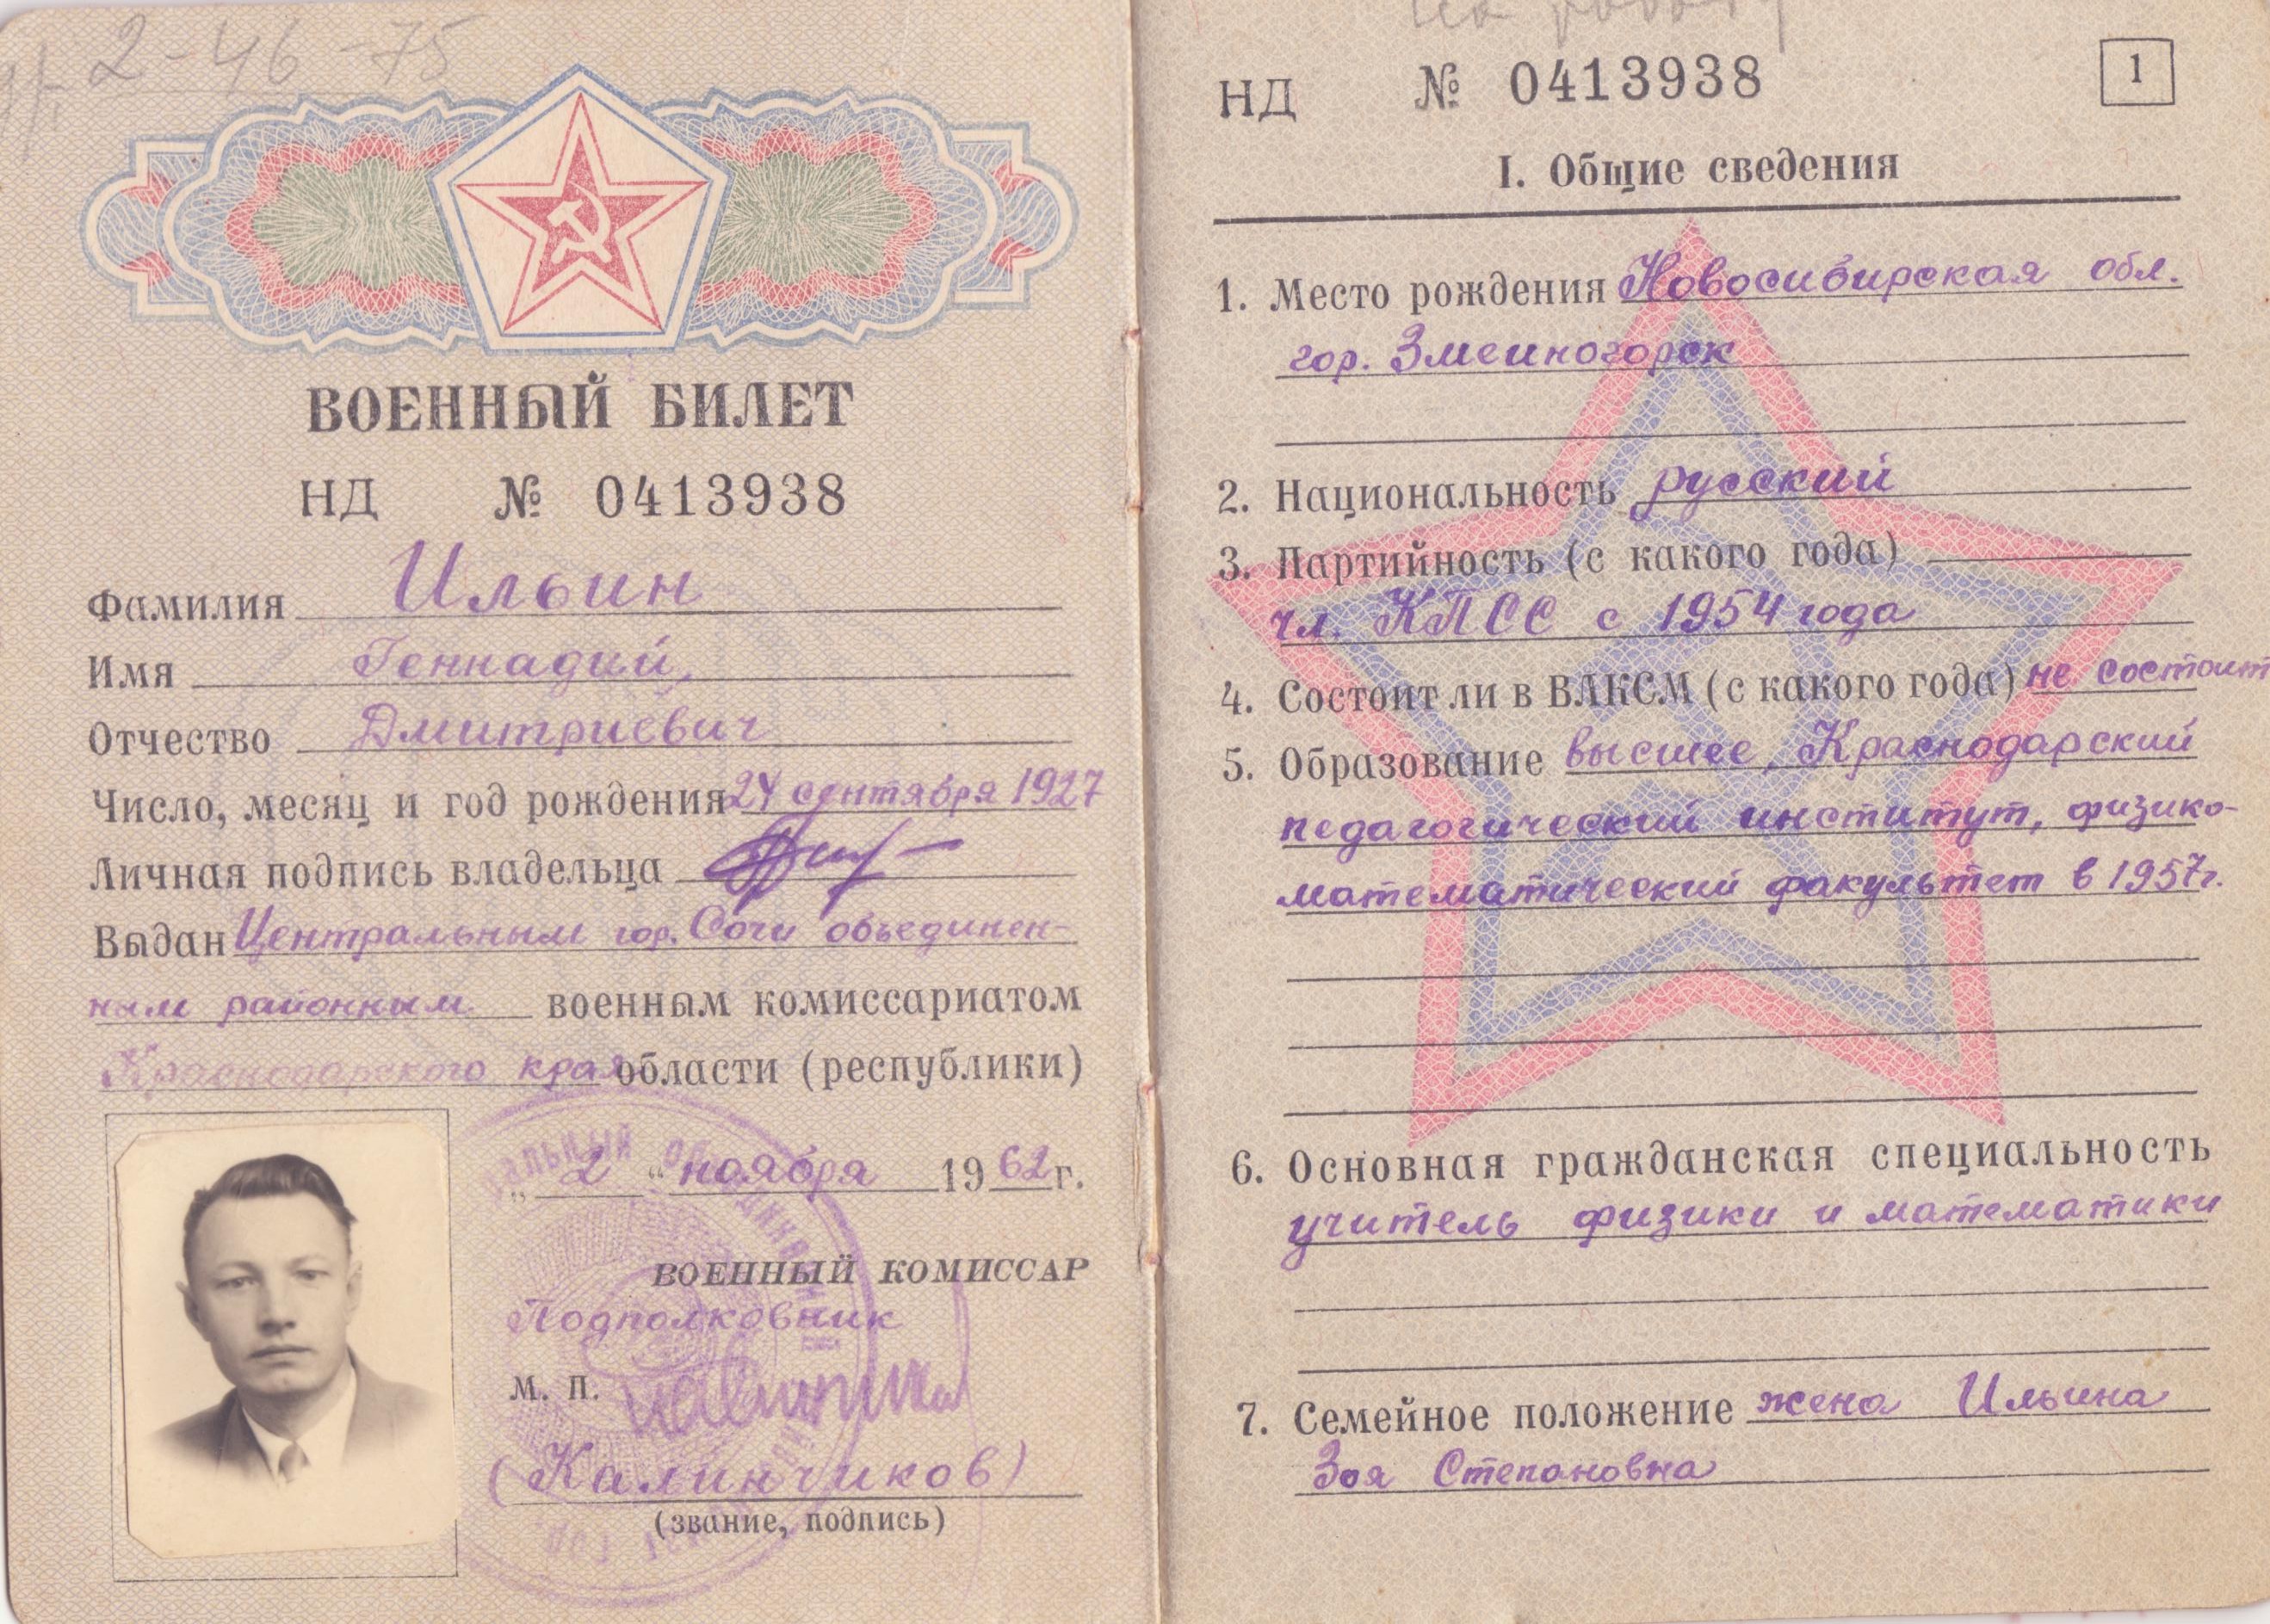 2-46-75
ВОЕННЫЙ БИЛЕТ
НД № 0413938
Фамилия Ильин
Имя Геннадий
Отчество Дмитриевич
Число, месяц и год рождения 24 сентября 1927
Личная подпись владельца
Выдан Центральным гор. Сочи объединен-
ным районным военным комиссариатом
Краснодарского края области (республики)
„ 2 “ ноября 1962 г.
ВОЕННЫЙ КОМИССАР
Подполковник
М. П.
(Калинчиков)
(звание, подпись)
НД № 0413938
1
I. Общие сведения
1. Место рождения Новосибирская обл.
гор. Змеиногорск
2. Национальность русский
3. Партийность (с какого года)
чл. КПСС с 1954 года
4. Состоит ли в ВЛКСМ (с какого года) не состоит
5. Образование высшее, Краснодарский
педагогический институт, физико-
математический факультет в 1957г.
6. Основная гражданская специальность
учитель физики и математики
7. Семейное положение жена Ильина
Зоя Степановна